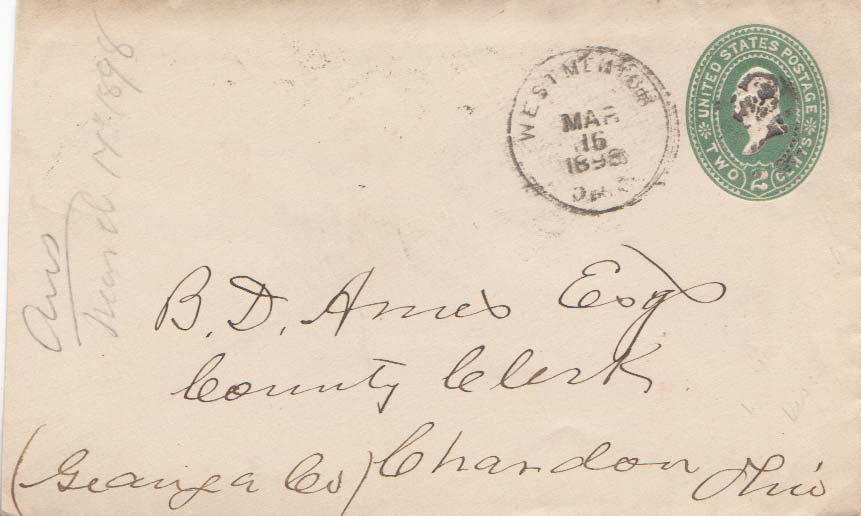 UNITED STATES POSTAGE
TWO 2 CENTS
WEST MENTOR
MAR
16
1898
Ans
March 17th 1898
B. D. Ames Esq
County Clerk
(Geauga Co) Chardon Ohio